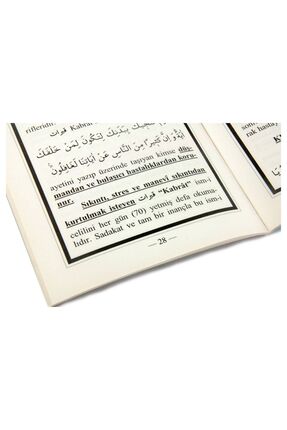 rifleridi
نُنَجِّيكَ بِبَدَنِكَ لِتَكُونَ لِمَنْ خَلْفَكَ
آيَةً وَإِنَّ كَثِيرًا مِنَ النَّاسِ عَنْ آيَاتِنَا لَغَافِلُونَ
ayetini yazıp üzerinde taşıyan kimse düş-
mandan ve bulaşıcı hastalıklardan koru-
nur.
Sıkıntı, stres ve manevi sıkıntıdan
kurtulmak isteyen "Kabrât" ism-i
celilini her gün (70) yetmiş defa okuma-
lıdır. Sadakat ve tam bir inançla bu ism-i
— 28 —
rak hastay